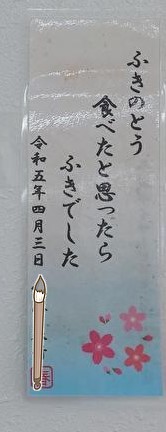 ふきのとう
食べたと思ったら
ふきでした
令和五年四月三日